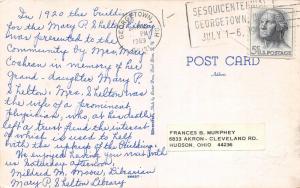 In 1920 the Building
for the Mary P. Shelton Library
was presented to the
Community by Mrs. Mary
Cochran in memory of her
Grand-daughter Mary P.
Shelton. Mrs. Shelton was
the wife of a prominent
physician, who at his death
left a Trust fund the interest
of which is used to help
with the upkeep of the Building.
We enjoyed having you with us
Saturday afternoon.
Mildred M. Moore, Librarian
Mary P. Shelton Library
GEORGETOWN, OHIO
PM
SESQUICENTENNIAL
GEORGETOWN,
JULY 1-6,
5¢
POST CARD
Address
FRANCES B. MURPHEY
5833 AKRON - CLEVELAND RD.
HUDSON, OHIO 44236